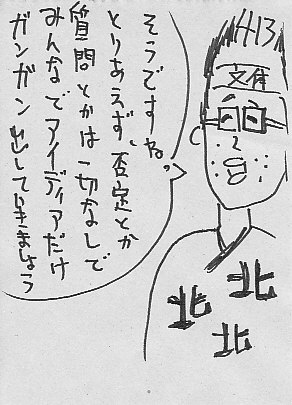 そうですね。
とりあえず、否定とか
質問とかは一切なしで
みんなでアイディアだけ
ガンガン出していきましょう
北
北
北